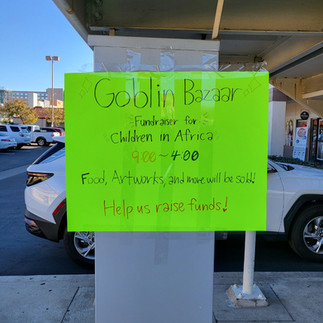 Goblin Bazaar
Fundraiser for
Children in Africa
9:00 ~ 4:00
Food, Artworks, and more will be sold!
Help us raise funds!